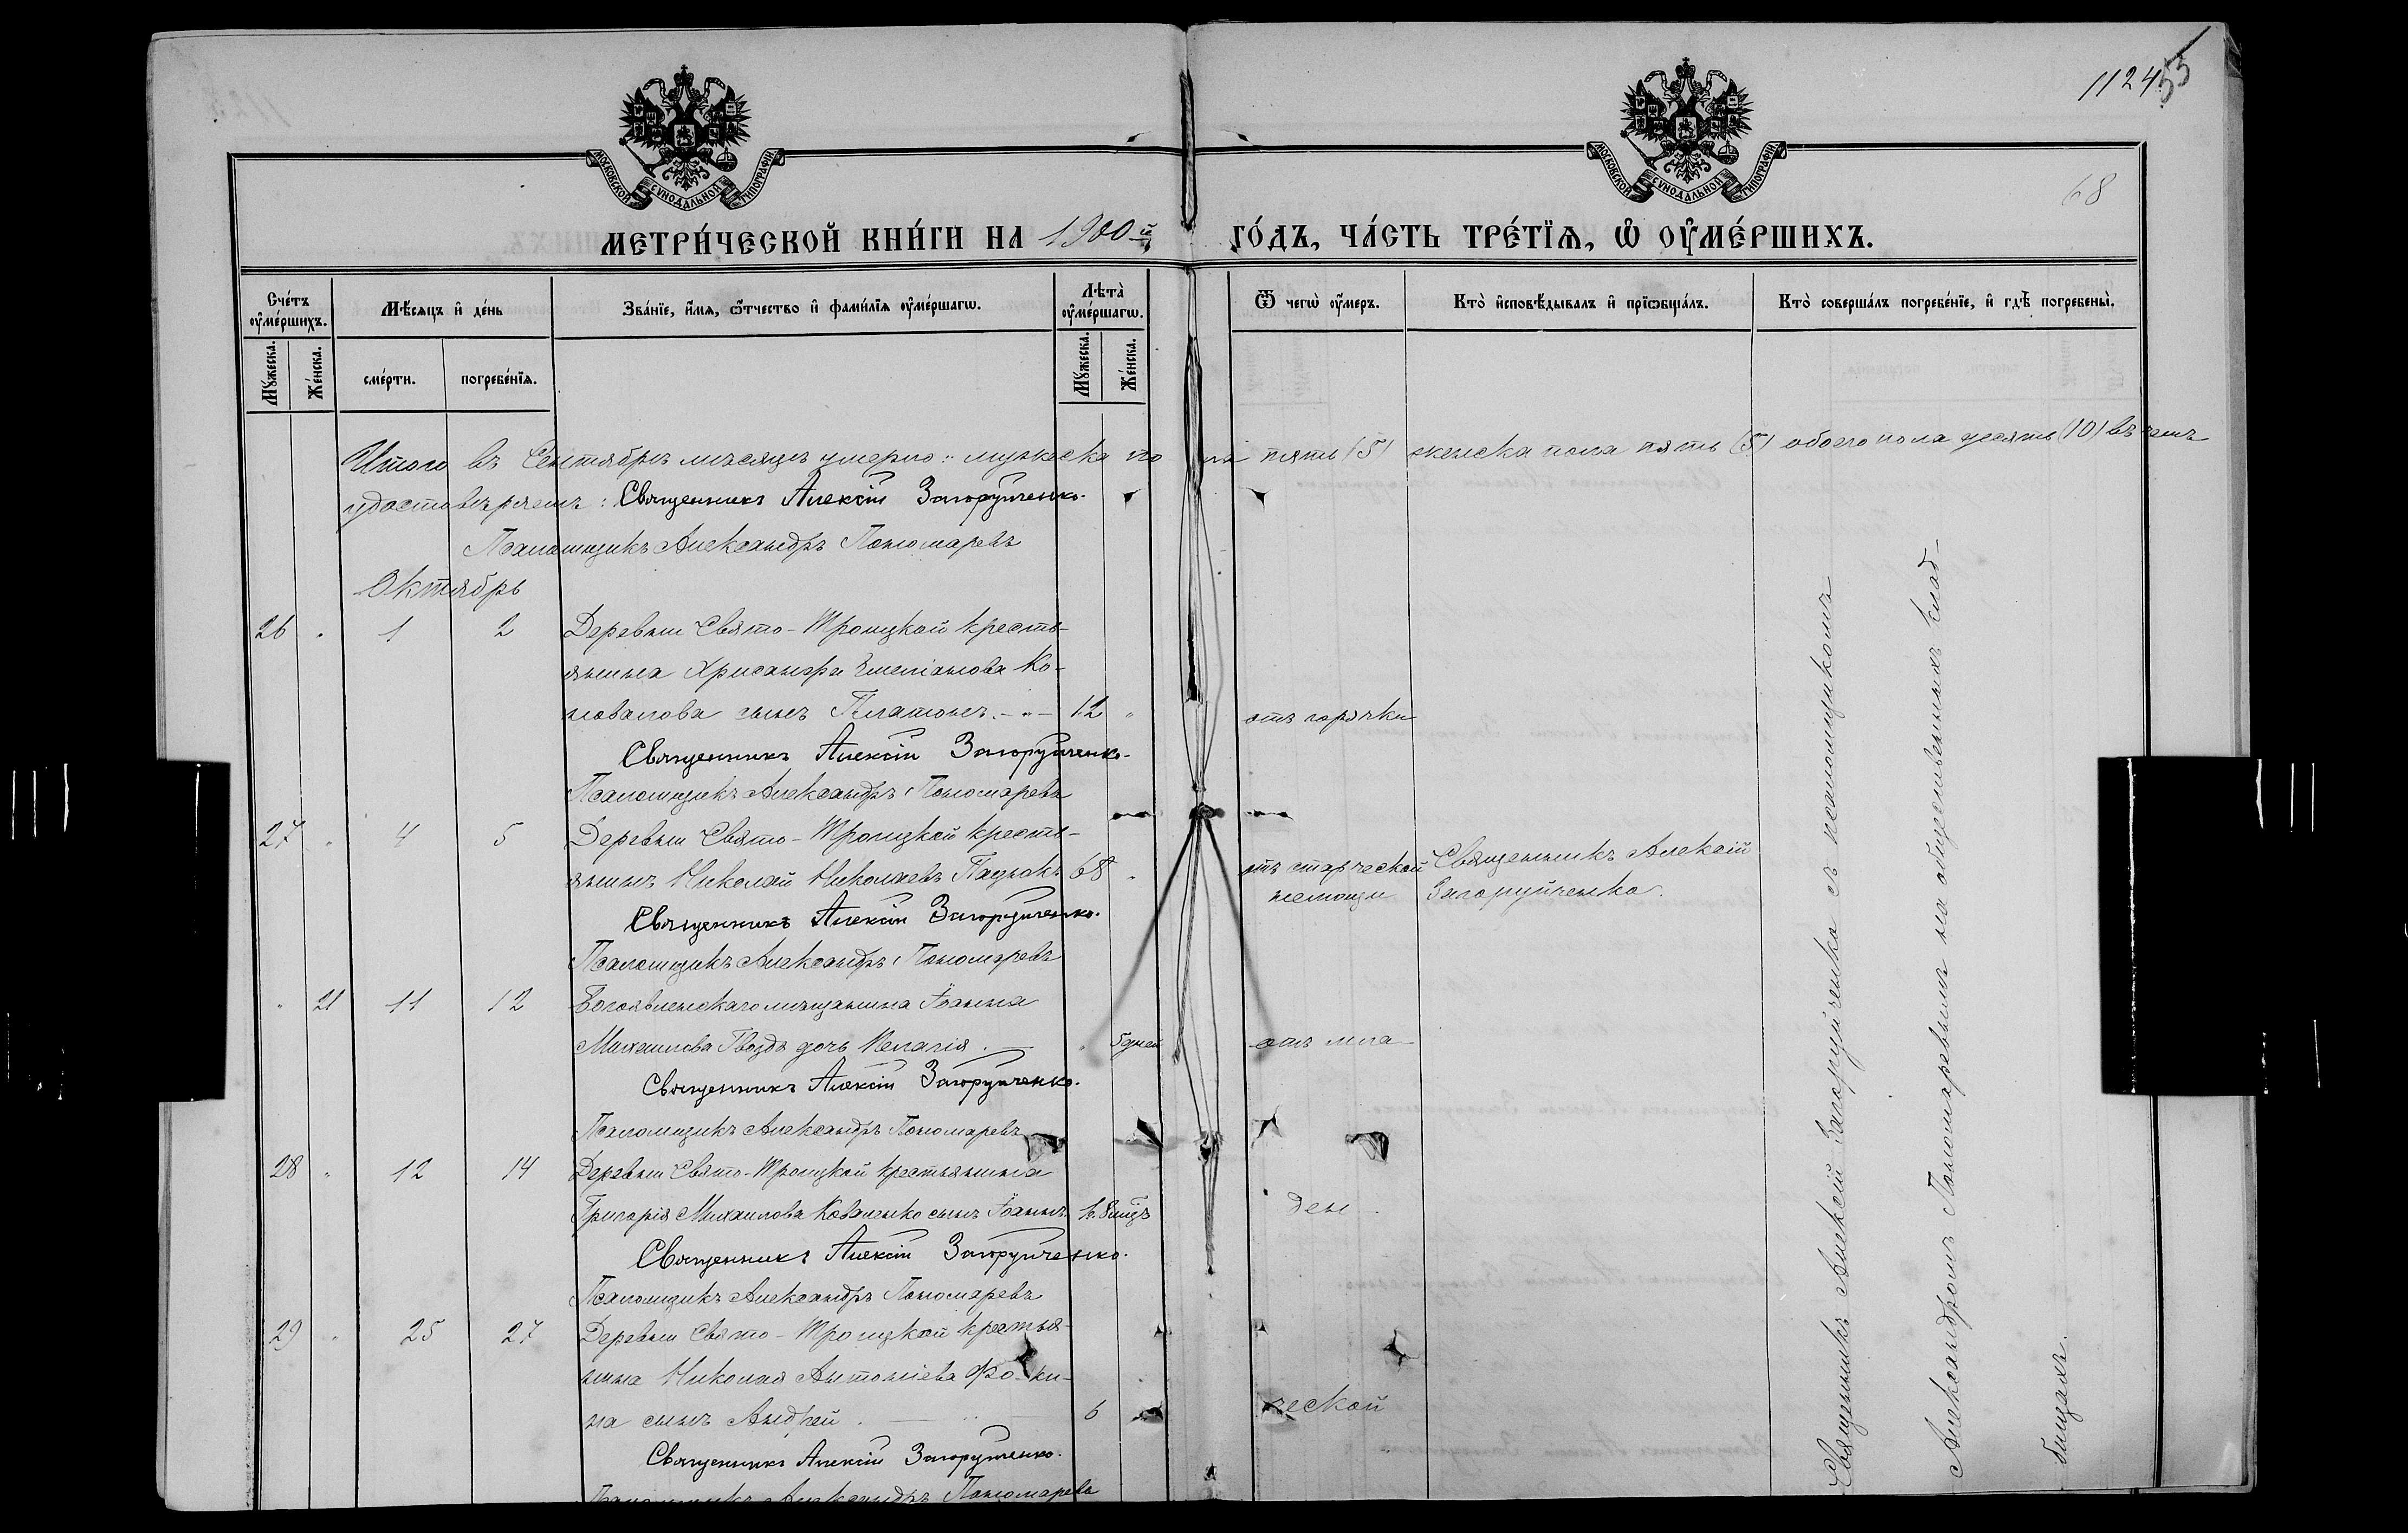 1124 55
68
МОСКОВСКОЙ СУНОДАЛЬНОЙ ТИПОГРАФІИ
МОСКОВСКОЙ СУНОДАЛЬНОЙ ТИПОГРАФІИ
МЕТРИ́ЧЕСКОЙ КНИ́ГИ НА 1900й ГО́ДЪ, ЧА́СТЬ ТРЕ́ТЇѦ, Ѡ҆ ОУ҆МЕ́РШИХЪ.
Сче́тъ оу҆ме́ршихъ.
Мꙋ́жеска.
Же́нска.
Мѣ́сяцъ и҆ де́нь
сме́рти.
погребе́нїѧ.
Зва́нїе, и҆́мѧ, ѻ҆́тчество и҆ фами́лїѧ оу҆ме́ршагѡ.
Лѣта̀ оу҆ме́ршагѡ.
Мꙋ́жеска.
Же́нска.
Ѿ чегѡ̀ оу҆́меръ.
Кто̀ и҆сповѣ́дывалъ и҆ прїѻбща́лъ.
Кто̀ соверша́лъ погребе́нїе, и҆ гдѣ̀ погребены̀.
Итого въ Сентябрѣ мѣсяцѣ умерло: мужеска по ла пять (5) женска пола пять (5) обоего пола десять (10) въ чемъ
удостовѣряемъ: Священникъ Алексій Загоруйченко.
Псаломщикъ Александръ Пономаревъ
Октябрь
26 " 1 2 Деревни Свято-Троицкой кресть-
янина Хрисанфа Емеліанова Ко-
новалова сынъ Платонъ. - " - 12 " отъ горячки
Священникъ Алексій Загоруйченко.
Псаломщикъ Александръ Пономаревъ
27 " 4 5 Деревни Свято-Троицкой кресть-
янинъ Николай Николаевъ 68 " отъ старческой Священникъ Алексій
немощи Загоруйченко.
Священникъ Алексій Загоруйченко.
Псаломщикъ Александръ Пономаревъ
" 21 11 12 Богоявленскаго мѣщанина Іоанна
Михаилова Гвоздя дочь Пелагія. " 5 дней отъ мла
Священникъ Алексій Загоруйченко.
Псаломщикъ Александръ Пономаревъ
28 " 12 14 Деревни Свято-Троицкой крестьянина
Григорія Михаилова Коваленко сынъ Іоаннъ ден
Священникъ Алексій Загоруйченко.
Псаломщикъ Александръ Пономаревъ
29 " 25 27 Деревни Свято-Троицкой крестья-
нина Николая Антоніева Фо ки-
на сынъ Андрей. 6 ческой
Священникъ Алексій Загоруйченко.
Псаломщикъ Александръ Пономаревъ
Священникъ Алексій Загоруйченко съ псаломщикомъ
Александромъ Пономаревымъ на общественныхъ клад-
бищахъ.